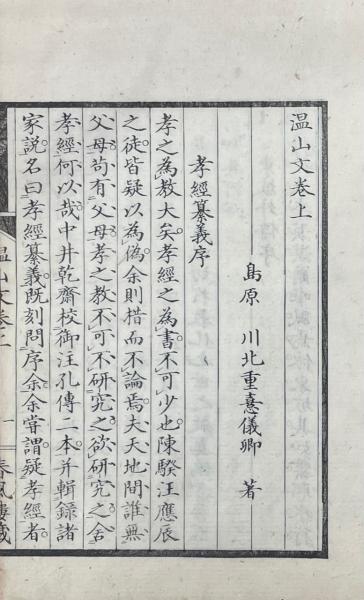 温山文卷上
島原 川北重憙儀卿 著
孝經纂義序
孝之為教大矣孝經之為書不可少也陳騤汪應辰
之徒皆疑以為偽余則措而不論焉夫天地間誰無
父母苟有父母孝之教不可不研究之欲研究之舍
孝經何以哉中井乾齋校御汪孔傳二本并輯錄諸
家說名曰孝經纂義既刻問序余余嘗謂疑孝經者
温山文卷上
一
春風樓藏